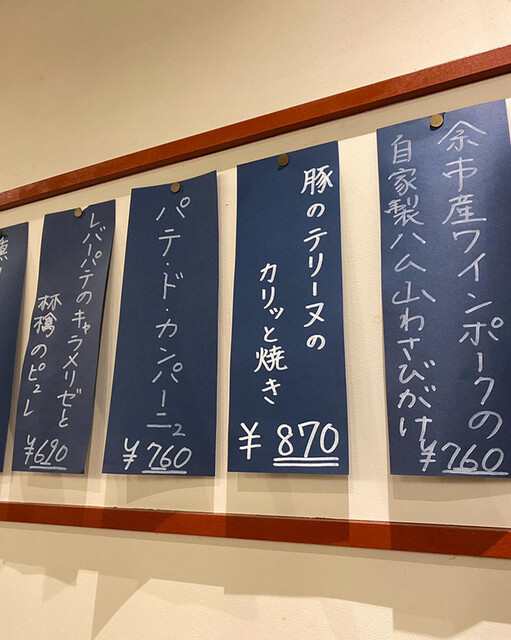 余市産ワインポークの
自家製ハム山わさびがけ
¥760
豚のテリーヌの
カリッと焼き
¥870
パテ・ド・カンパーニュ
¥760
レバーパテのキャラメリゼと
林檎のピュレ
¥690
燻